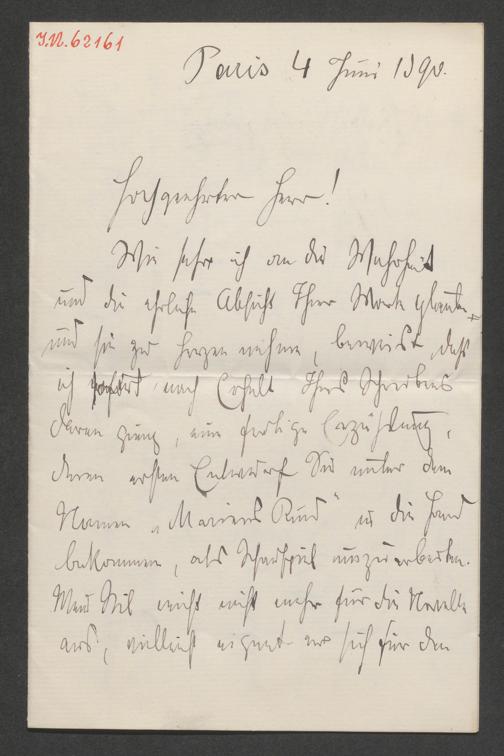 I.N. 62161
Paris 4 Juni 1890.
Hochgeehrter Herr!
Wie sehr ich an die Wahrheit
und die ehrliche Absicht Ihrer Worte glaube
und sie zu Herzen nehme, beweist, daß
ich sofort nach Erhalt Ihres Schreibens
daran gieng, eine fertige Erzählung,
deren ersten Entwurf Sie unter dem
Namen „Mariens Kind" in die Hand
bekommen, als Schauspiel auszuarbeiten.
Mein Stil reicht nicht mehr für die Novelle
aus, vielleicht eignet er sich für den